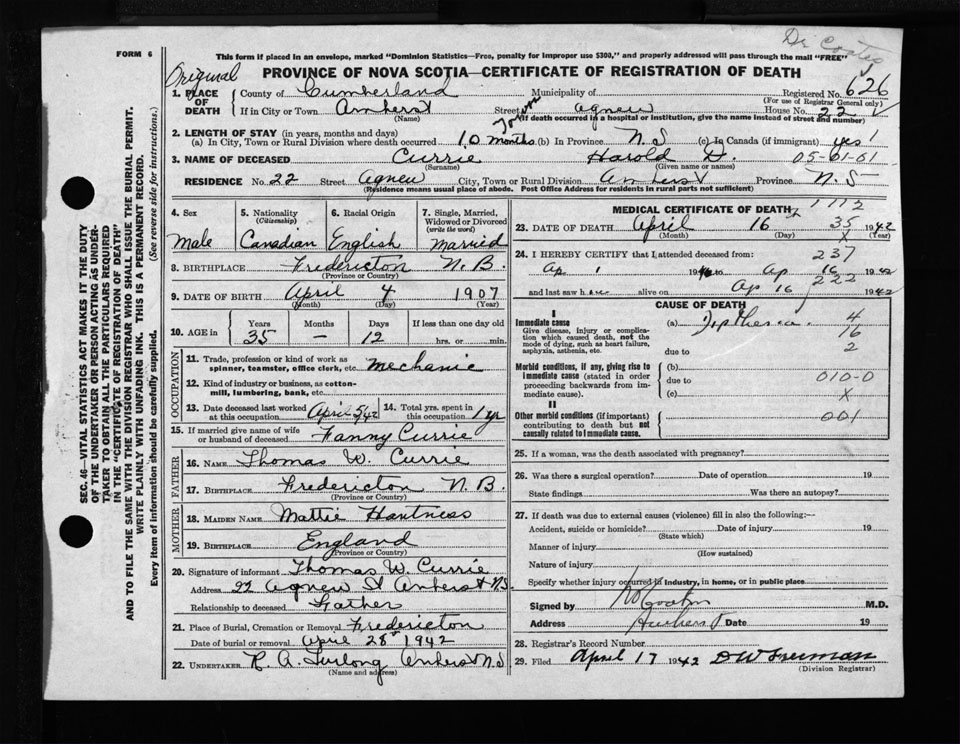 Dr Coates
FORM 6
This form if placed in an envelope, marked "Dominion Statistics—Free, penalty for improper use $300," and properly addressed will pass through the mail "FREE"
Original
PROVINCE OF NOVA SCOTIA—CERTIFICATE OF REGISTRATION OF DEATH
1. PLACE OF DEATH
County of Cumberland Municipality of Registered No. 626
(For use of Registrar General only)
If in City or Town Amherst Street Agnew House No. 22
(Name) (If death occurred in a hospital or institution, give the name instead of street and number)
2. LENGTH OF STAY (in years, months and days)
(a) In City, Town or Rural Division where death occurred 10 months (b) In Province N.S (c) In Canada (if immigrant) yes 1
3. NAME OF DECEASED Currie Harold D. 05-01-01
(Surname) (Given name or names)
RESIDENCE No. 22 Street Agnew City, Town or Rural Division Amherst Province N.S
(Residence means usual place of abode. Post Office Address for residents in rural parts not sufficient)
SEC. 46—VITAL STATISTICS ACT MAKES IT THE DUTY
OF THE UNDERTAKER OR PERSON ACTING AS UNDER-
TAKER TO OBTAIN ALL THE PARTICULARS REQUIRED
IN THE "CERTIFICATE OF REGISTRATION OF DEATH"
AND TO FILE THE SAME WITH THE DIVISION REGISTRAR WHO SHALL ISSUE THE BURIAL PERMIT.
WRITE PLAINLY WITH UNFADING INK. THIS IS A PERMANENT RECORD.
Every item of information should be carefully supplied. (See reverse side for instructions.)
4. Sex
Male
5. Nationality
(Citizenship)
Canadian
6. Racial Origin
English
7. Single, Married,
Widowed or Divorced
(write the word)
Married
8. BIRTHPLACE Fredericton N.B.
(Province or Country)
9. DATE OF BIRTH April 4 1907
(Month) (Day) (Year)
10. AGE in
Years Months Days If less than one day old
35 — 12 hrs. or min.
OCCUPATION
11. Trade, profession or kind of work as
spinner, teamster, office clerk, etc. Mechanic
12. Kind of industry or business, as cotton-
mill, lumbering, bank, etc.
13. Date deceased last worked
at this occupation April 5/42
14. Total yrs. spent in
this occupation 1 yr
15. If married give name of wife
or husband of deceased Fanny Currie
FATHER
16. Name Thomas W. Currie
17. Birthplace Fredericton N.B.
(Province or Country)
MOTHER
18. Maiden Name Mattie
19. Birthplace England
(Province or Country)
20. Signature of informant Thomas W. Currie
Address 22 Agnew St Amherst N.S.
Relationship to deceased Father
21. Place of Burial, Cremation or Removal Fredericton
Date of burial or removal April 28 1942
22. UNDERTAKER R. A. Furlong Amherst N.S.
(Name and address)
MEDICAL CERTIFICATE OF DEATH
1112
23. DATE OF DEATH April 16 35 1942
(Month) (Day) X (Year)
24. I HEREBY CERTIFY that I attended deceased from: 237
Ap 1 1942 to Ap 16 1942
222
and last saw h alive on Ap 16 1942
CAUSE OF DEATH
I
Immediate cause
Give disease, injury or complica-
tion which caused death, not the
mode of dying, such as heart failure,
asphyxia, asthenia, etc.
(a) Diptheria 4
16
due to 2
Morbid conditions, if any, giving rise to
immediate cause (stated in order
proceeding backwards from im-
mediate cause).
(b)
due to 010-0
(c) X
II
Other morbid conditions (if important)
contributing to death but not
causally related to immediate cause.
001
25. If a woman, was the death associated with pregnancy?
26. Was there a surgical operation? Date of operation 19
State findings Was there an autopsy?
27. If death was due to external causes (violence) fill in also the following:—
Accident, suicide or homicide? Date of injury 19
(State which)
Manner of injury
(How sustained)
Nature of injury
Specify whether injury occurred to industry, in home, or in public place
Signed by M.D.
Address Amherst Date 19
28. Registrar's Record Number
29. Filed April 17 1942 D W Freeman
(Division Registrar)